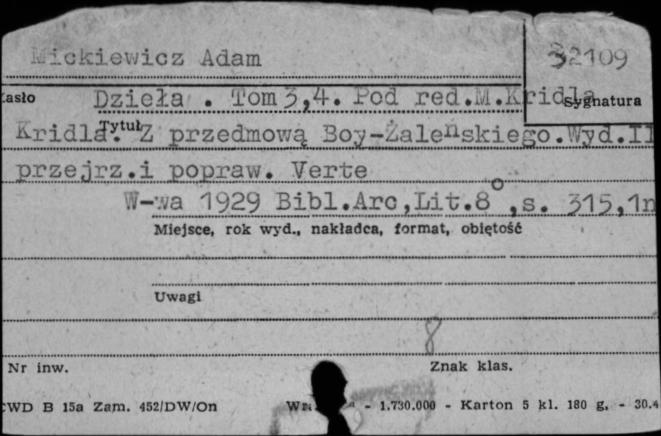 Mickiewicz Adam 32109
Hasło Dzieła . Tom 3,4. Pod red.M.Kridla Sygnatura
Kridla. Tytuł Z przedmową Boy-Żaleńskiego.Wyd.II
przejrz.i popraw. Verte
W-wa 1929 Bibl.Arc,Lit.8° ,s. 315,1n
Miejsce, rok wyd., nakładca, format, objętość
Uwagi
8
Nr inw. Znak klas.
CWD B 15a Zam. 452/DW/On - 1.730.000 - Karton 5 kl. 180 g, - 30.4